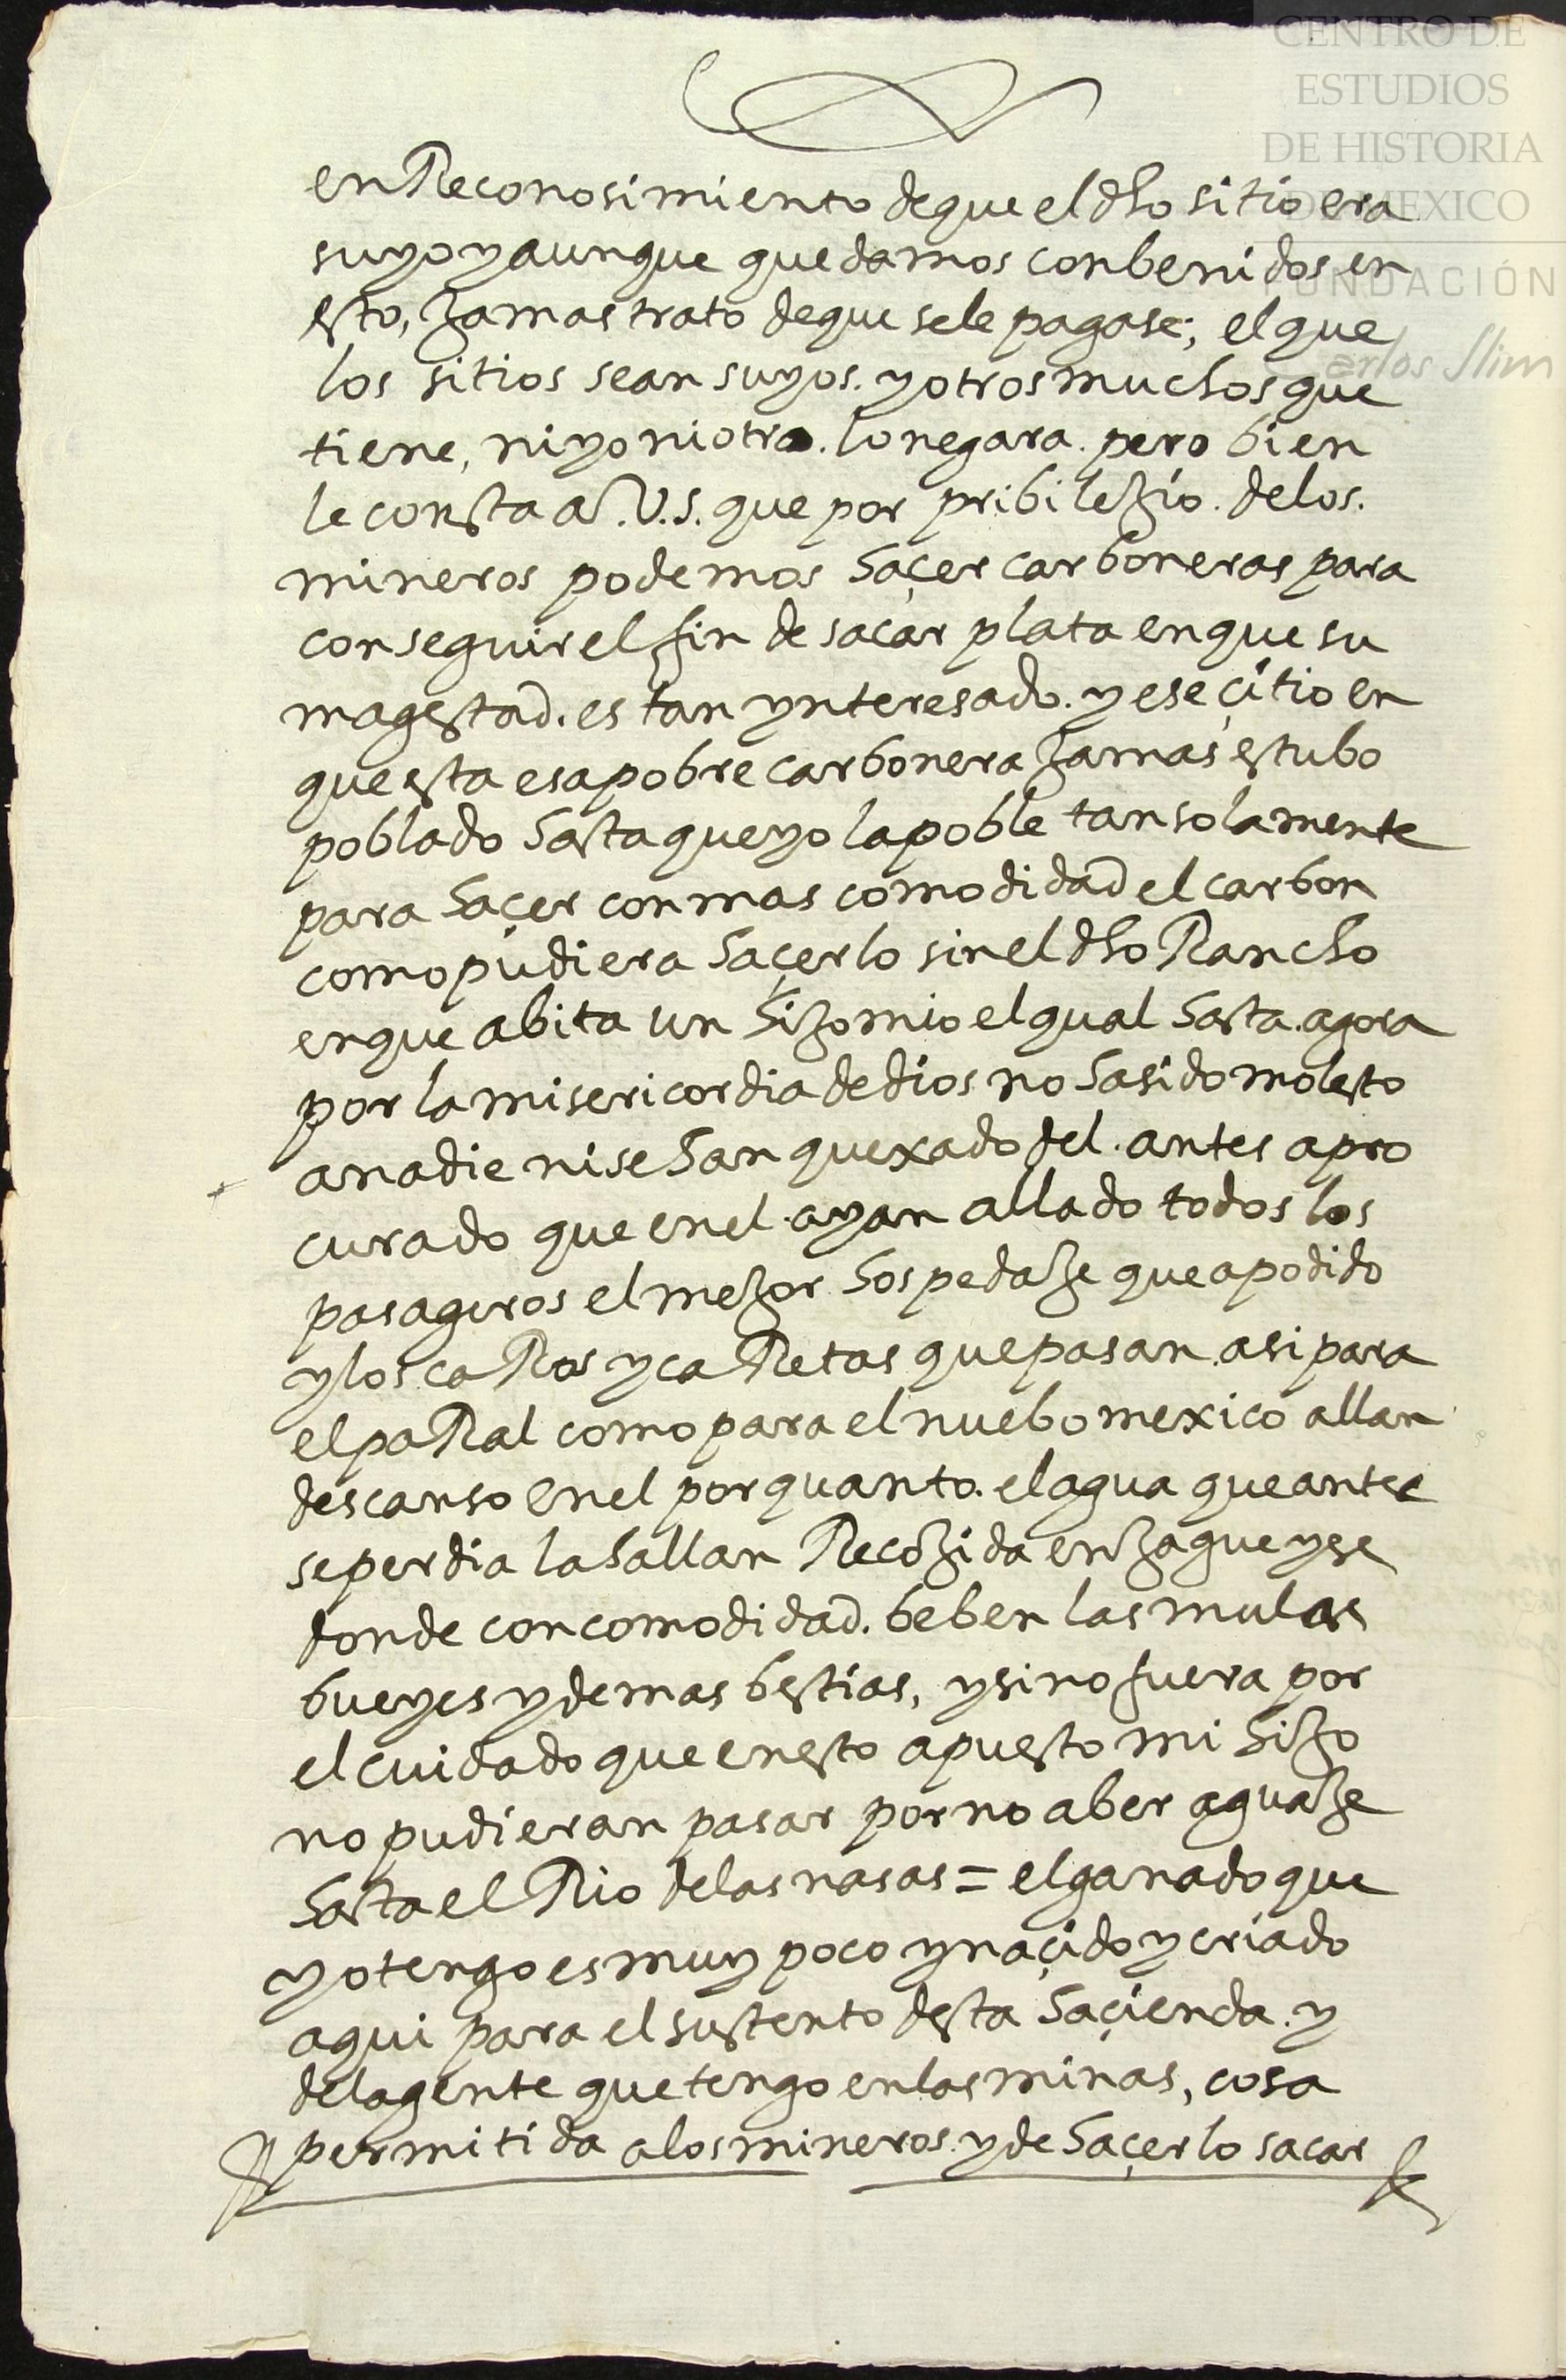 CENTRO DE
ESTUDIOS
DE HISTORIA
DE MEXICO
FUNDACIÓN
Carlos Slim
en Reconosimiento de que el dho sitio era
suyo y aunque quedamos conbenidos en
esto, jamas trato de que se le pagase; el que
los sitios sean suyos. y otros muchos que
tiene, ni yo ni otro. lo negara. pero bien
le consta a V.S. que por pribilejio. de los.
mineros podemos haçer carboneras para
conseguir el fin de sacar plata en que su
magestad. es tan ynteresado. y ese çitio en
que esta esa pobre carbonera jamas estubo
poblado hasta que yo la poble tan solamente
para haçer con mas comodidad el carbon
como pudiera haçerlo sin el dho Rancho
en que abita un hijo mio el qual hasta agora
por la misericordia de dios no ha sido molesto
a nadie ni se han quexado del. antes a pro
curado que en el ayan allado todos los
pasageros el mejor hospedaje que a podido
y los caRos y caRetas que pasan asi para
el paRal como para el nuebo mexico allan
descanso en el por quanto. el agua que antes
se perdia la hallan Recojida en jagueyes
donde con comodidad. beben las mulas
bueyes y demas bestias, y si no fuera por
el cuidado que en esto a puesto mi hijo
no pudieran pasar por no aber aguaje
hasta el Rio de las nasas = el ganado que
yo tengo es muy poco y naçido y criado
aqui para el sustento desta haçienda. y
de la gente que tengo en las minas, cosa
permitida a los mineros. y de haçerlo sacar